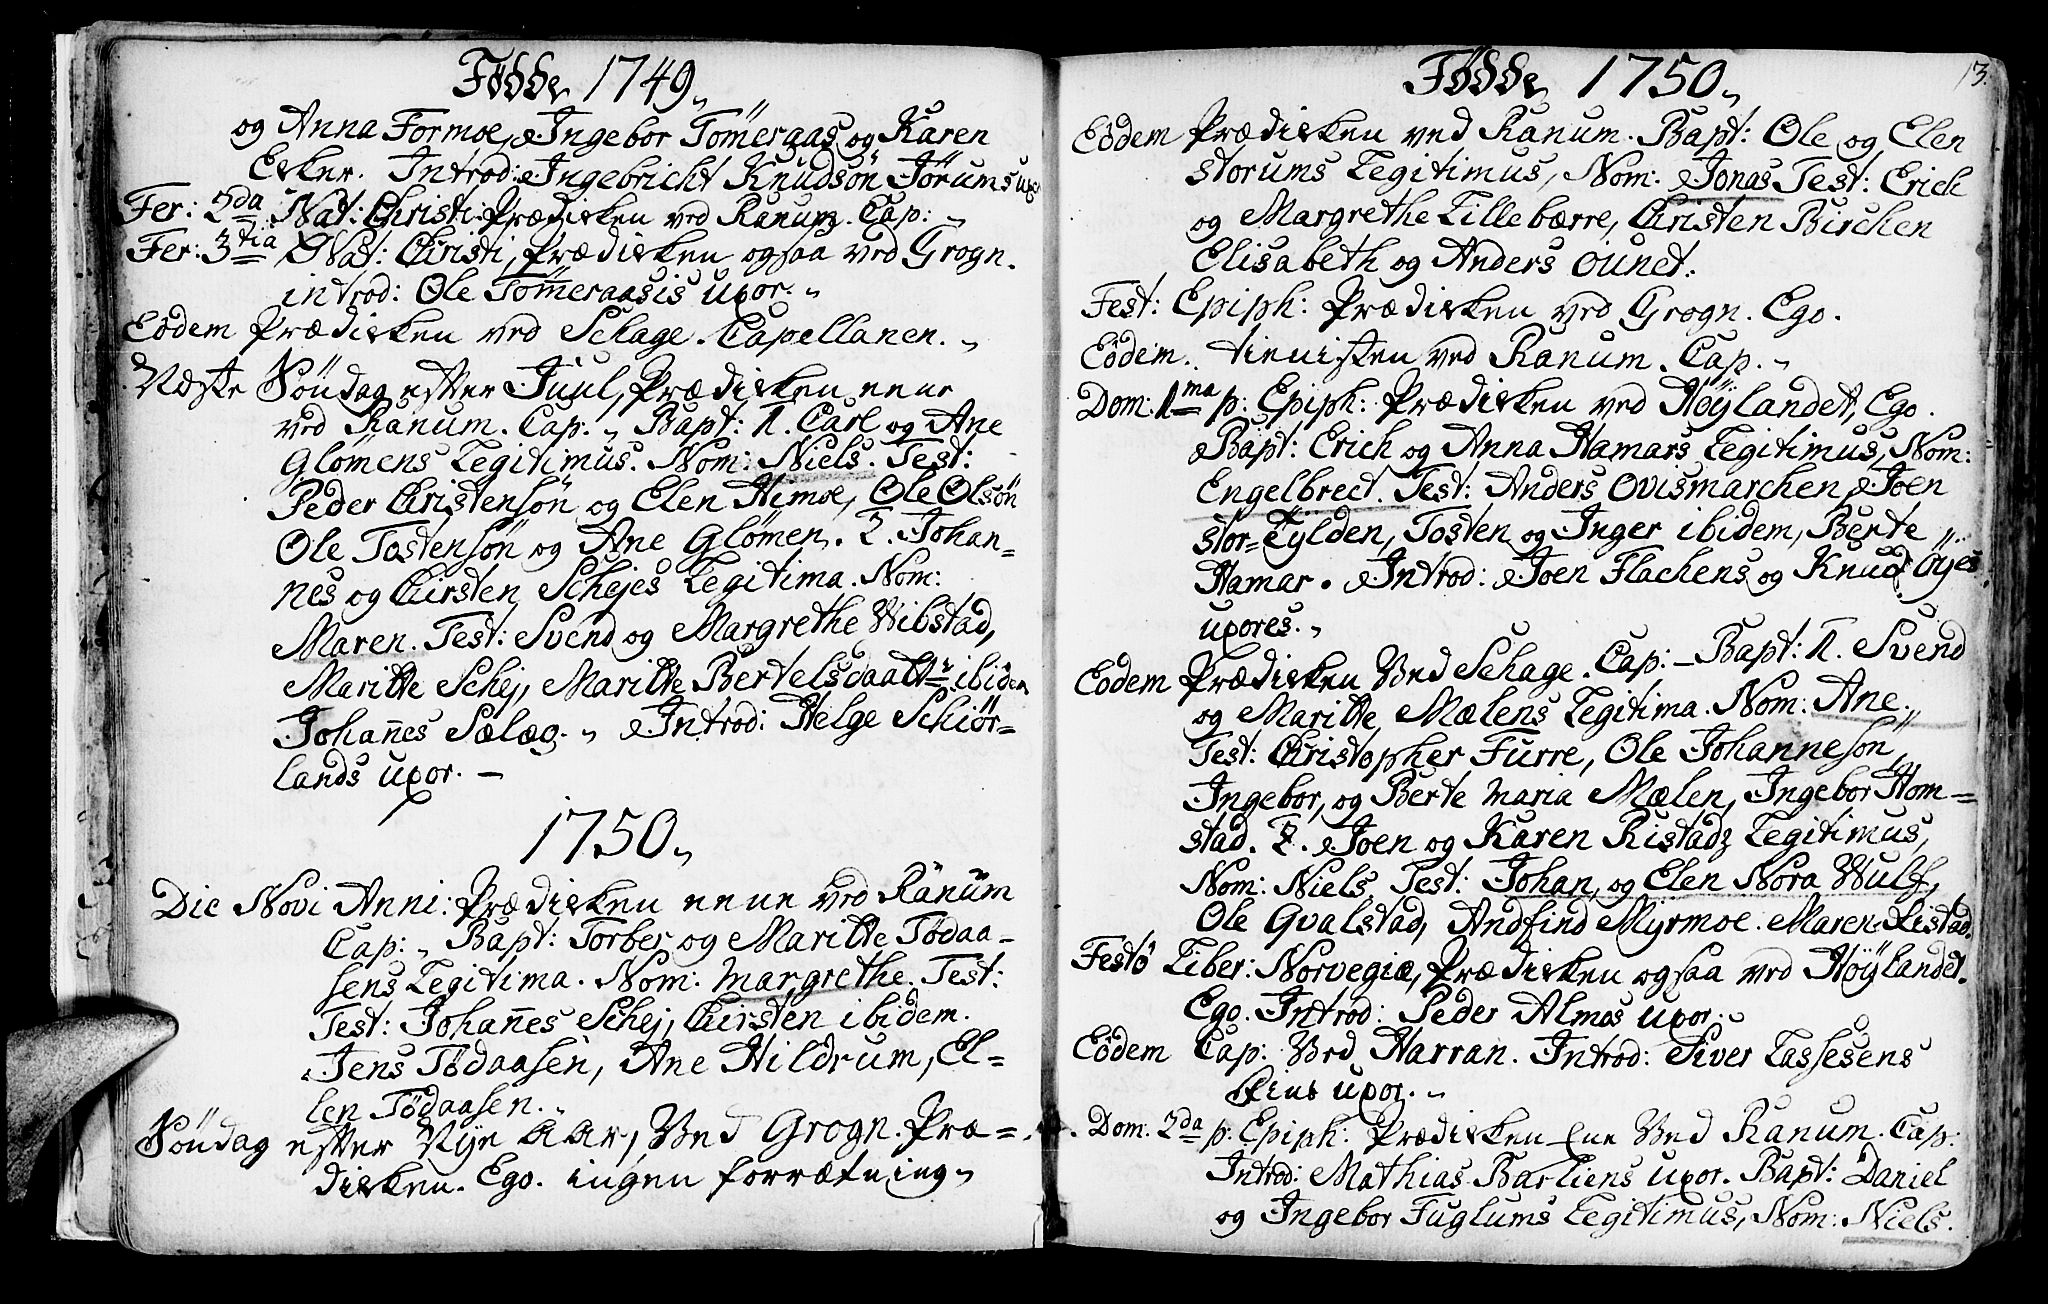 Fødde 1749.
og Anna Formoe, Ingebor Tömeraas og Karen
Esker. Introd: Ingebricht Knudsön Jörums ux:
Fer: 2da Nat: Christi: Prædicken ved Ranum. Cap:
Fer: 3tia Nat: Christi, Prædicken ogsaa ved Grogn.
introd: Ole Tömeraasis uxor.
Eodem Prædicken ved Schage. Capellanen.
Næste Söndag efter Juul, Prædicken
ved Ranum. Cap: Bapt: 1. Carl og Ane
Glömens Legitimus. Nom: Niels. Test:
Peder Christensön og Elen Himoe, Ole Olsön
Ole Tostensön og Ane Glömen. 2. Johan=
nes og Chirsten Schejes Legitima. Nom:
Maren. Test: Svend og Margrethe Vibstad,
Maritte Schej, Maritte Bertelsdaatter ibidem
Johan̄es Sælæg. Introd: Helge Schiör=
lands uxor. —
1750.
Die Novi Anni: Prædicken ved Ranum
Cap: Bapt: Torber og Maritte Tödaa=
sens Legitima. Nom: Margrethe. Test:
Test: Johan̄es Schej, Chirsten ibidem.
Jens Tödaasen, Ane Hildrum, El=
len Tödaasen.
Söndag efter Nye Aar, Ved Grogn. Præ=
dicken. Ego. ingen forrætning
Fødde 1750.
13.
Eodem Prædicken ved Ranum. Bapt: Ole og Elen
storums Legitimus, Nom: Jonas Test: Erich
og Margrethe Lille bærre, Christen Birchen
Elisabeth og Anders Ounet.
Fest: Epiph: Prædicken ved Grogn. Ego.
Eodem. tienisten ved Ranum. Cap.
Dom: 1ma p: Epiph: Prædicken ved Höylandet, Ego.
Bapt: Erich og Anna Hamars Legitimus, Nom:
Engelbrect. Test: Anders Ovismarchen, Joen
stor=Tylden, Tosten og Inger ibidem, Berte
Hamar. Introd: Joen Flachens og Knud Öyes
uxores.
Eodem Prædicken Ved Schage. Cap: — Bapt: 1. Svend
og Maritte Mælens Legitima. Nom: Ane.
Test: Christopher Furre, Ole Johannesön,
Ingebor, og Berte Maria Mælen, Ingebor Hom=
stad. 2. Joen og Karen Ristadz Legitimus,
Nom: Niels. Test: Johan, og Elen Nora Wulf,
Ole Gvalstad, Andfind Myrmoe. Maren Ristad.
Festo Liber: Norvegiæ, Prædicken ogsaa ved Höylandet.
Ego. Introd: Peder Almaas uxor.
Eodem Cap: Ved Harran. Introd: Siver Lassesens
uxor.
Dom. 2da p: Epiph: Prædicken Ved Ranum. Cap:
Introd: Mathias Barliens uxor. Bapt: Daniel
og Ingebor Fuglums Legitimus, Nom: Niels.